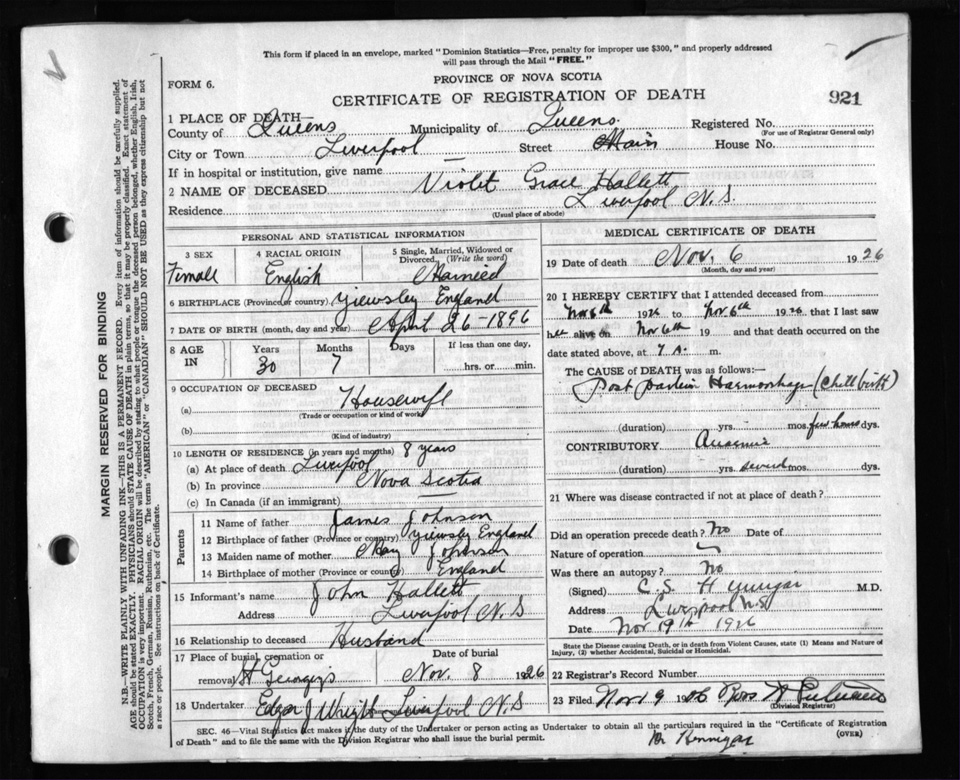 This form if placed in an envelope, marked "Dominion Statistics—Free, penalty for improper use $300," and properly addressed
will pass through the Mail "FREE."
FORM 6.
PROVINCE OF NOVA SCOTIA
CERTIFICATE OF REGISTRATION OF DEATH
921
1 PLACE OF DEATH—
County of Queens Municipality of Queens Registered No.
(For use of Registrar General only)
City or Town Liverpool Street Main House No.
If in hospital or institution, give name
2 NAME OF DECEASED Violet Grace Hallett
Residence Liverpool N.S.
(Usual place of abode)
PERSONAL AND STATISTICAL INFORMATION
3 SEX Female
4 RACIAL ORIGIN English
5 Single, Married, Widowed or Divorced (Write the word) Married
6 BIRTHPLACE (Province or country) Yiewsley England
7 DATE OF BIRTH (month, day and year) April 26-1896
8 AGE IN Years 30 Months 7 Days If less than one day, hrs. or min.
9 OCCUPATION OF DECEASED
(a) Housewife
(Trade or occupation or kind of work)
(b)
(Kind of industry)
10 LENGTH OF RESIDENCE (in years and months) 8 years
(a) At place of death Liverpool
(b) In province Nova Scotia
(c) In Canada (if an immigrant)
Parents
11 Name of father James Johnson
12 Birthplace of father (Province or country) Yiewsley England
13 Maiden name of mother May Johnson
14 Birthplace of mother (Province or country) England
15 Informant's name John Hallett
Address Liverpool N.S
16 Relationship to deceased Husband
17 Place of burial, cremation or removal St Georges Date of burial Nov. 8 1926
18 Undertaker Edgar J Wright Liverpool N S
MEDICAL CERTIFICATE OF DEATH
19 Date of death Nov. 6 1926
(Month, day and year)
20 I HEREBY CERTIFY that I attended deceased from
Nov 6th 1926 to Nov 6th 1926 that I last saw
her alive on Nov 6th 19 and that death occurred on
date stated above, at 7 A. m.
The CAUSE OF DEATH was as follows:—
Post partum Haemorrhage (Child birth)
(duration) yrs. mos. few hours dys.
CONTRIBUTORY Anaemia
(duration) yrs. several mos. dys.
21 Where was disease contracted if not at place of death?
Did an operation precede death? No Date of
Nature of operation
Was there an autopsy? No
(Signed) C. S. Hennigar M.D.
Address Liverpool N.S
Date Nov 19th 1926
State the Disease causing Death, or in death from Violent Causes, state (1) Means and Nature of
Injury, (2) whether Accidental, Suicidal or Homicidal.
22 Registrar's Record Number
23 Filed Nov 9 1926 Ross
(Division Registrar)
SEC. 46—Vital Statistics Act makes it the duty of the Undertaker or person acting as Undertaker to obtain all the particulars required in the "Certificate of Registration
of Death" and to file the same with the Division Registrar who shall issue the burial permit.
(OVER)
Dr Hennigar
MARGIN RESERVED FOR BINDING
N.B.—WRITE PLAINLY WITH UNFADING INK—THIS IS A PERMANENT RECORD. Every item of information should be carefully supplied.
AGE should be stated EXACTLY. PHYSICIANS should STATE CAUSE OF DEATH in plain terms, so that it may be properly classified. Exact statement of
OCCUPATION is very important. RACIAL ORIGIN will be described by stating to what people or tongue the deceased person belonged, whether English, Irish,
Scotch, French, German, Russian, Ruthenian, etc. The terms "AMERICAN" or "CANADIAN" SHOULD NOT BE USED as they express citizenship but not
a race or people. See instructions on back of Certificate.